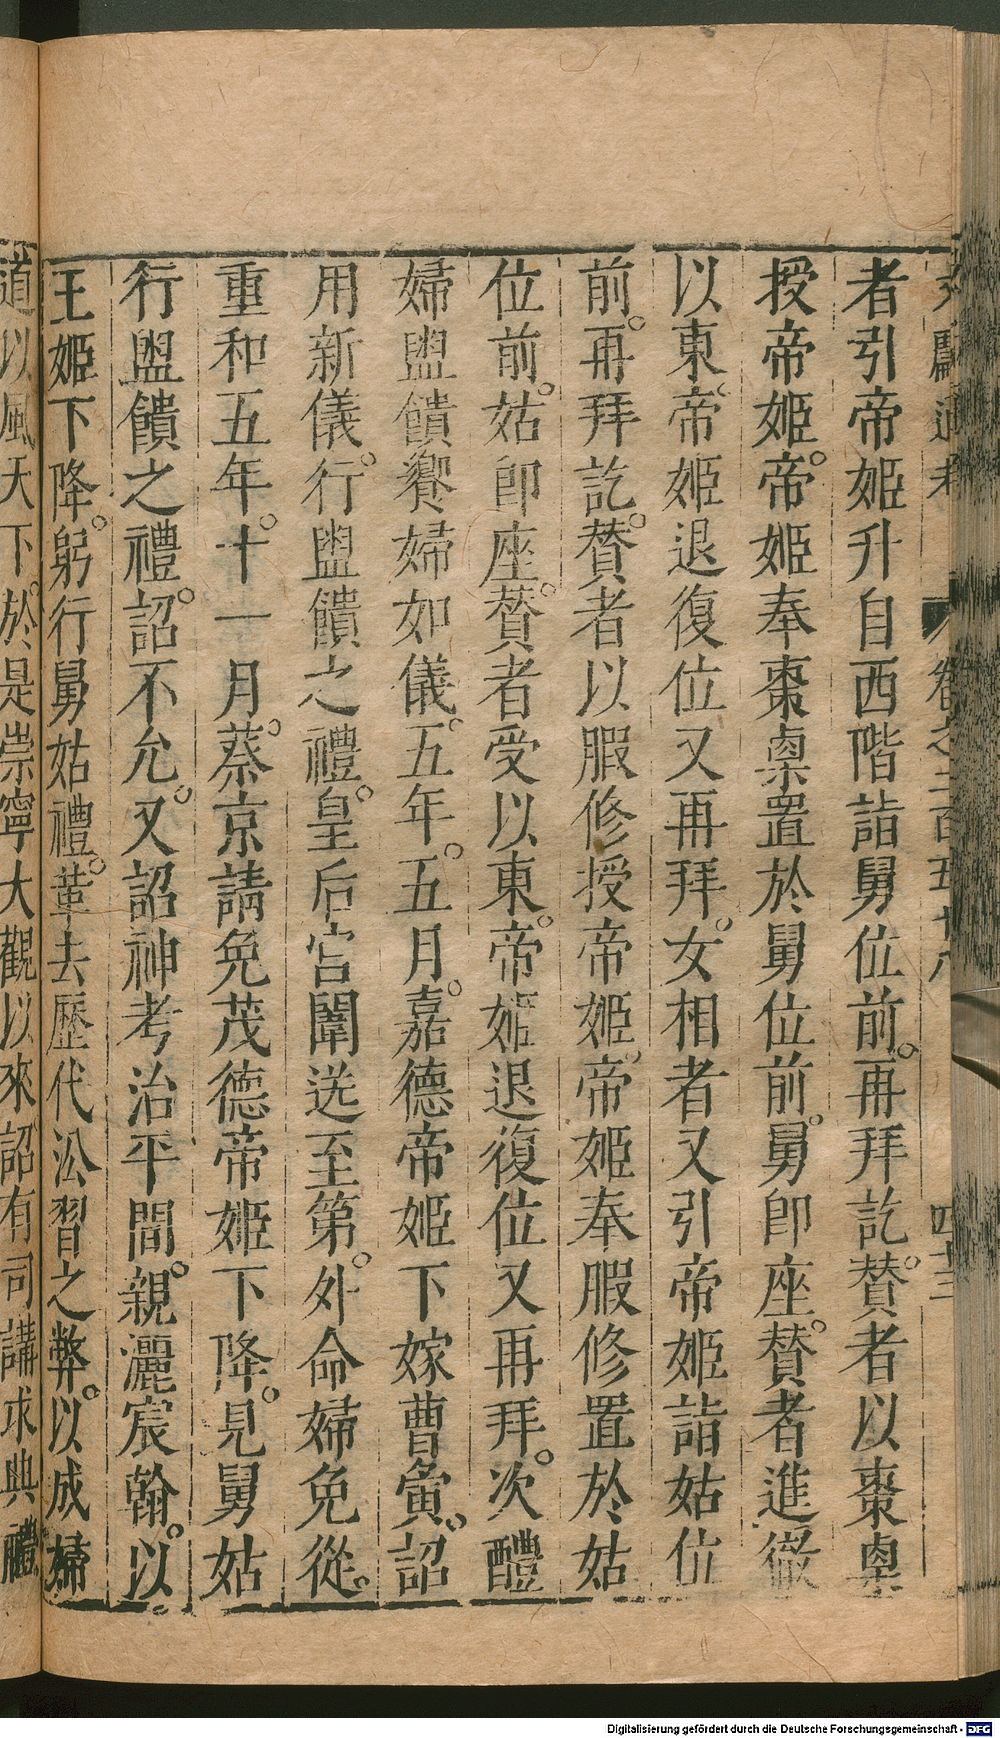 文獻通考 卷之二百五十八 四十三
者引帝姬升自西階詣舅位前。再拜訖。贊者以棗㮚
授帝姬。帝姬奉棗㮚置於舅位前。舅卽座。贊者進徹
以東。帝姬退復位又再拜。女相者又引帝姬詣姑位
前。再拜訖。贊者以腶修授帝姬。帝姬奉腶修置於姑
位前。姑卽座。贊者受以東。帝姬退復位又再拜。次醴
婦盥饋饗婦如儀。五年。五月。嘉德帝姬下嫁曹夤。詔
用新儀。行盥饋之禮。皇后宮闈送至第。外命婦免從。
重和五年。十一月。蔡京請免茂德帝姬下降。見舅姑
行盥饋之禮。詔不允。又詔神考治平間。親灑宸翰。以
王姬下降。躬行舅姑禮。革去歷代㳂習之弊。以成婦
道以風天下。於是崇寧大觀以來詔有司講求典禮
Digitalisierung gefördert durch die Deutsche Forschungsgemeinschaft - DFG